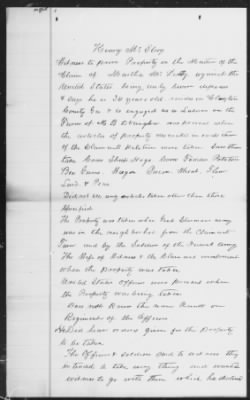 Henry McElroy
Witness to prove Property in the Matter of the
Claim of Martha McNatty against the
United States being duly sworn deposes
& says he is 34 years old resides in Clayton
County Ga & is engaged as a Laborer on the
Farm of was present when
the articles of property named in each item
of the Claimants Petition were taken
taken Cows Sheep Hogs Corn Fodder Potatoes
Bee Gums Wagon Bacon Wheat Flour
Lard & Peas
Did not see any articles taken other than those
specified
The Property was taken when Genl Shermans army
was in the neighborhood from the Claimants
Farm and by the Soldiers of the Federal Army
The Wife of Witness & the Claimant
when the Property was taken
United States Officers were present when
the Property was being taken
Does not Know the name Rank or
Regiments of the Officers
He Did hear orders given for the Property
to be taken
The Officers & soldiers said to witness they
intended to take every thing and wanted
witness to go with them which he declined